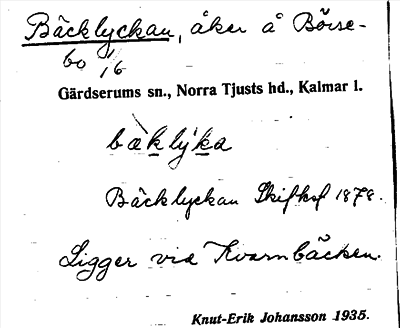 Bäcklyckan, åker å Börse-
bo 1/6
Gärdserums sn., Norra Tjusts hd., Kalmar l.
bæklýka
Bäcklyckan Skifksf 1878.
Ligger vid Kvarnbäcken.
Knut-Erik Johansson 1935.